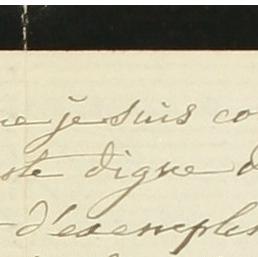 je suis co
digne d
d'exemple